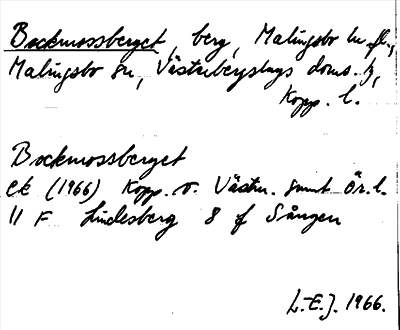 Bockmossberget, berg, Malingsbo kr.fl.,
Malingsbo sn, Västerbergslags doms. h,
Kopp. l.
Bockmossberget
ek (1966) Kopp. o. Västm. samt Ör. l.
11 F Lindesberg 8 f Sången
L-E.J. 1966.